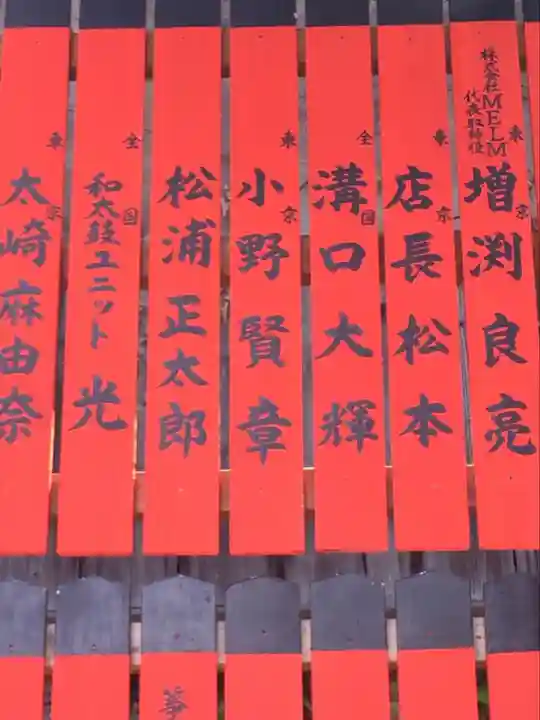 株式会社MELM
代表取締役
東京
増渕良亮
東京
店長松本
全国
溝口大輝
東京
小野賢章
松浦正太郎
全国
和太鼓ユニット光
東京
太崎麻由奈